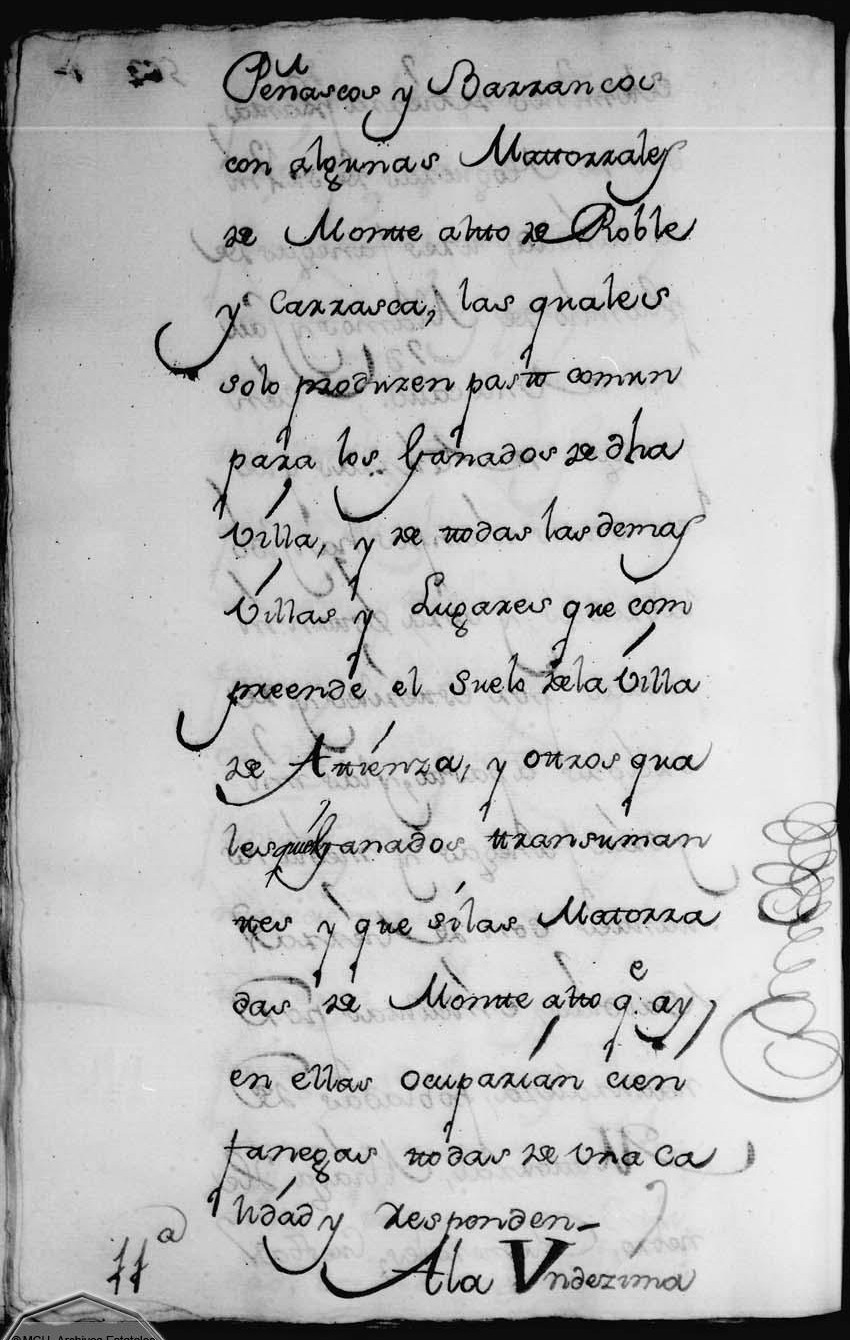 Peñascos y Barrancos
con algunas Mattorrales
de Montte altto de Roble
y Carrasca, las quales
solo produzen pastto comun
para los Ganados de dha
Villa, y de ttodas las demas
Villas y Lugares que com
preende el Suelo dela Villa
de Attienza, y ottros qua
lesquier Ganados ttransuman
ttes y que silas Matorra
das de Montte altto q.e ay
en ellas ocuparian cien
fanegas ttodas de una ca
lidad y responden_
11ª
Ala Vndezima
©MCU. Archivos Estatales